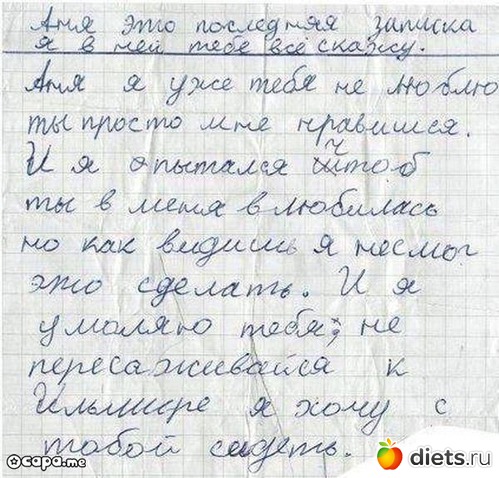 Аня это последняя записка
я в ней тебе всё скажу.
Аня я уже тебя не люблю
ты просто мне нравишся.
И я опытался чтоб
ты в меня влюбилась
но как видишь я несмог
это сделать. И я
умоляю тебя, не
пересаживайся к
Ильмире я хочу с
тобой сидеть.
сара.me
diets.ru